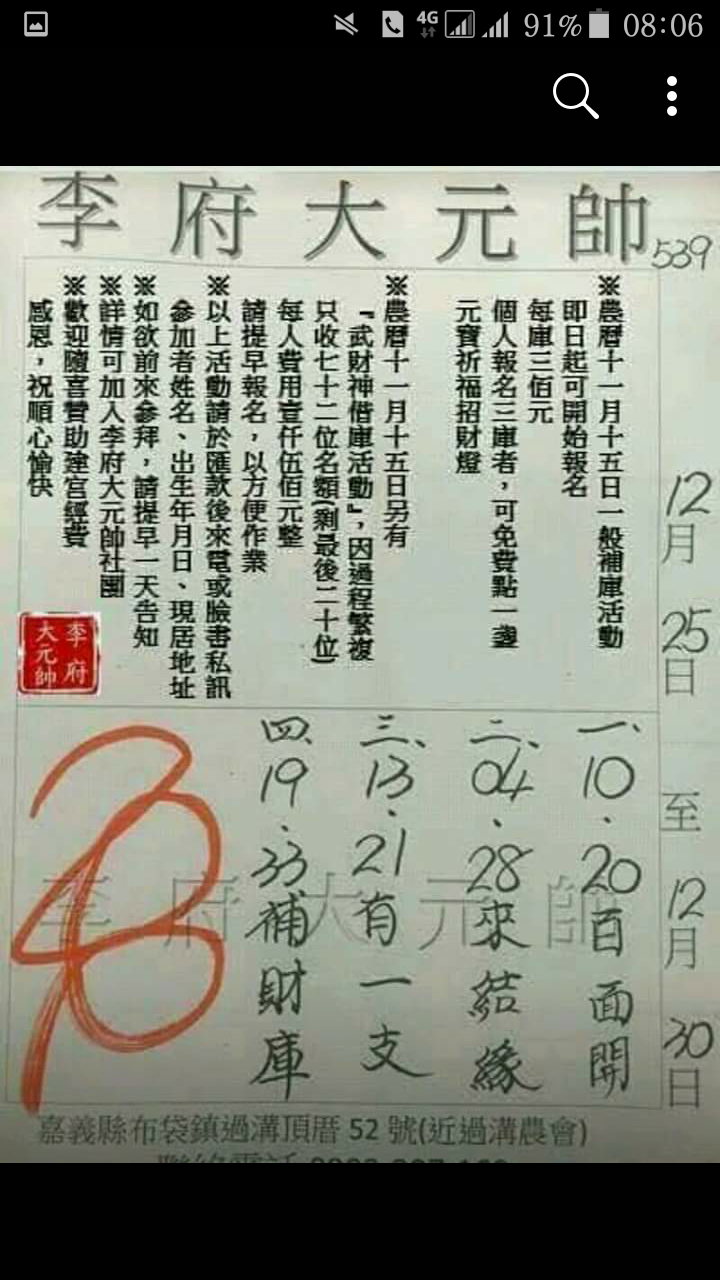 4G 91% 08:06
李府大元帥
539
12月25日至12月30日
※農曆十一月十五日一般補庫活動
即日起可開始報名
每庫三佰元
個人報名三庫者，可免費點一盞
元寶祈福招財燈
※農曆十一月十五日另有
『武財神借庫活動』，因過程繁複
只收七十二位名額(剩最後二十位)
每人費用壹仟伍佰元整
請提早報名，以方便作業
※以上活動請於匯款後來電或臉書私訊
參加者姓名、出生年月日、現居地址
※如欲前來參拜，請提早一天告知
※詳情可加入李府大元帥社團
※歡迎隨喜贊助建宮經費
感恩，祝順心愉快
李府
大元帥
一、10．20百面開
二、04．28來結緣
三、13．21有一支
四、19．33補財庫
李府大元帥
嘉義縣布袋鎮過溝頂厝 52 號(近過溝農會)